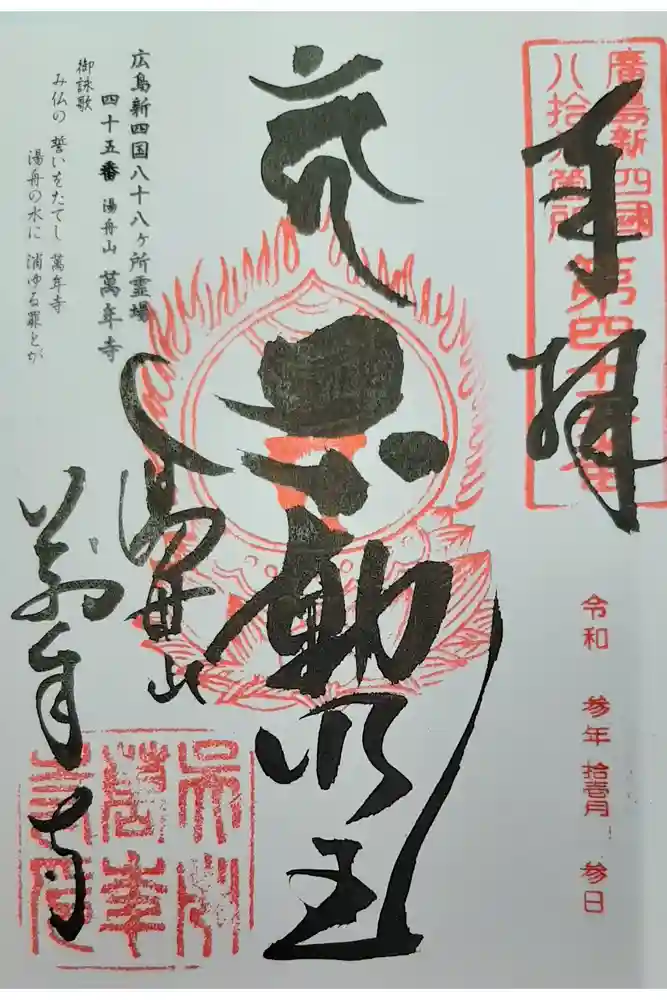 奉拝
廣島新四國
八拾八箇所
第四十五番
令和 参年 拾壱月 参日
不動明王
湯舟山
萬年寺
広島新四国八十八ヶ所霊場
四十五番 湯舟山 萬年寺
御詠歌
み仏の 誓いをたてし 萬年寺
湯舟の水に 消ゆる罪とが